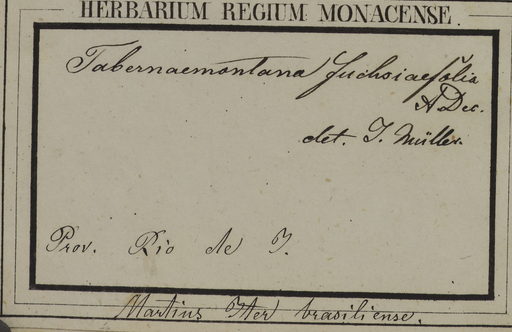 HERBARIUM REGIUM MONACENSE.
Tabernaemontana fuchsiaefolia
A Dec.
det. J. Müller.
Prov. Rio de J.
Martius Iter brasiliense.